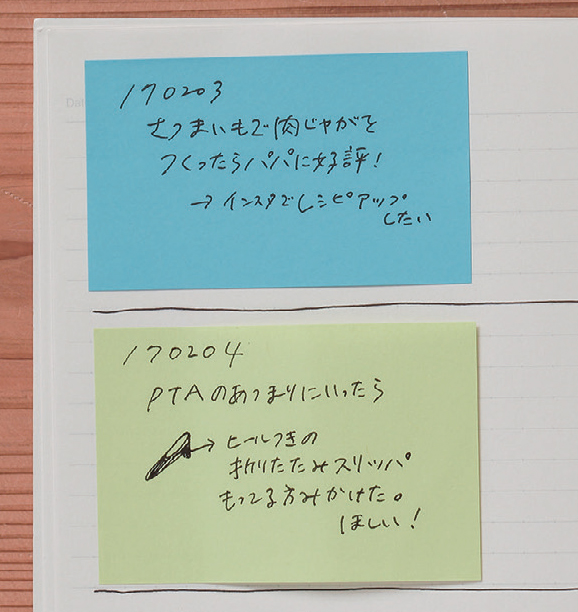 Dat
170203
さつまいもで肉じゃがを
つくったらパパに好評！
→インスタでレシピアップ
したい
170204
PTAのあつまりにいったら
→ヒールつきの
折りたたみスリッパ
もってる方みかけた。
ほしい！